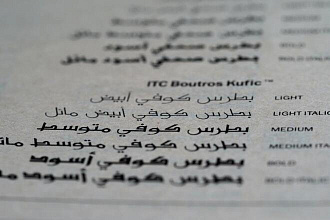 بطرس صحفي أسود
بطرس صحفي أسود مائل
ITC Boutros Kufic™
بطرس كوفي أبيض LIGHT
بطرس كوفي أبيض مائل LIGHT ITALIC
بطرس كوفي متوسط MEDIUM
بطرس كوفي متوسط مائل MEDIUM ITA
بطرس كوفي أسود BOLD
بطرس كوفي أسود مائل BOLD ITALIC